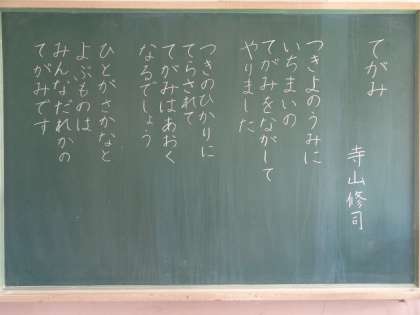 てがみ
寺山修司
つきよのうみに
いちまいの
てがみをながして
やりました
つきのひかりに
てらされて
てがみはあおく
なるでしょう
ひとがさかなと
よぶものは
みんなだれかの
てがみです